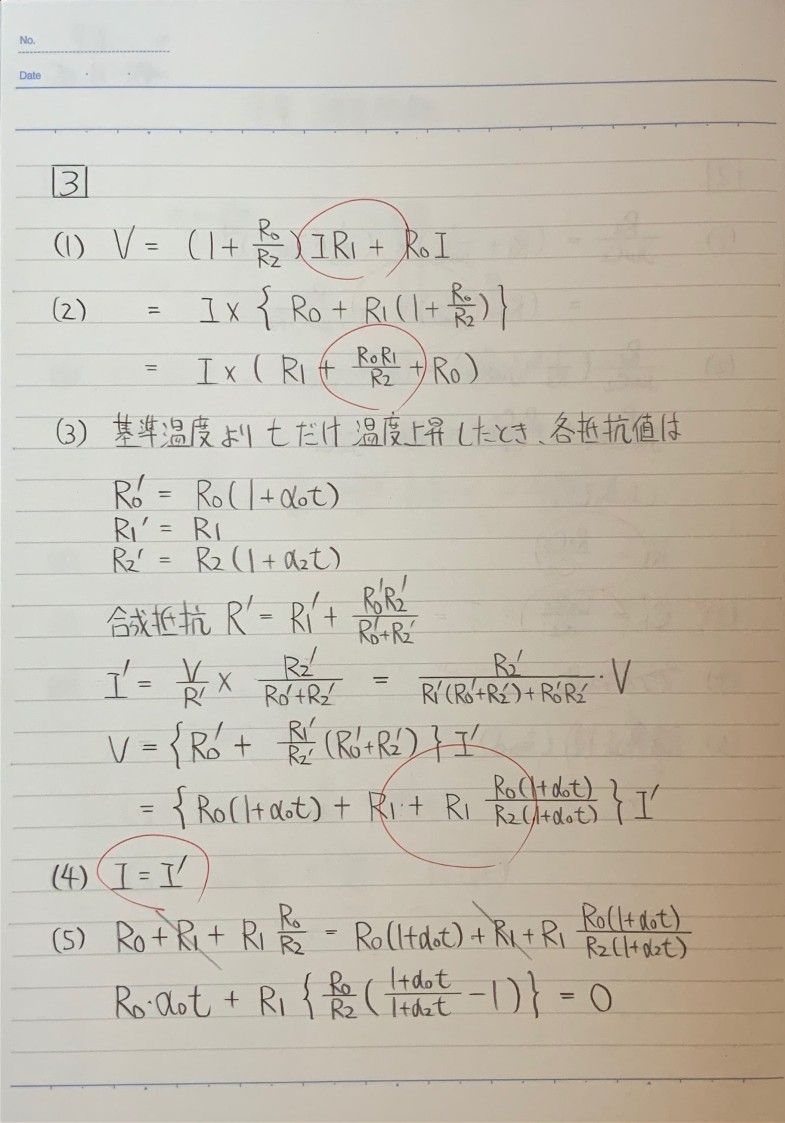 No.
Date
3
(1) V = (1 + R₀/R₂) I R₁ + R₀ I
(2) = I × { R₀ + R₁ (1 + R₀/R₂) }
= I × ( R₁ + R₀R₁/R₂ + R₀ )
(3) 基準温度より t だけ 温度上昇したとき、各抵抗値は
R₀′ = R₀ (1 + α₀t)
R₁′ = R₁
R₂′ = R₂ (1 + α₂t)
合成抵抗 R′ = R₁′ + R₀′R₂′/(R₀′+R₂′)
I′ = V/R′ × R₂′/(R₀′+R₂′) = R₂′/(R₁′(R₀′+R₂′) + R₀′R₂′) · V
V = { R₀′ + R₁′/R₂′ (R₀′+R₂′) } I′
= { R₀(1+α₀t) + R₁ + R₁ R₀(1+α₀t)/R₂(1+α₀t) } I′
(4) I = I′
(5) R₀ + R₁ + R₁ R₀/R₂ = R₀(1+α₀t) + R₁ + R₁ R₀(1+α₀t)/R₂(1+α₂t)
R₀·α₀t + R₁ { R₀/R₂ ( (1+α₀t)/(1+α₂t) − 1 ) } = 0